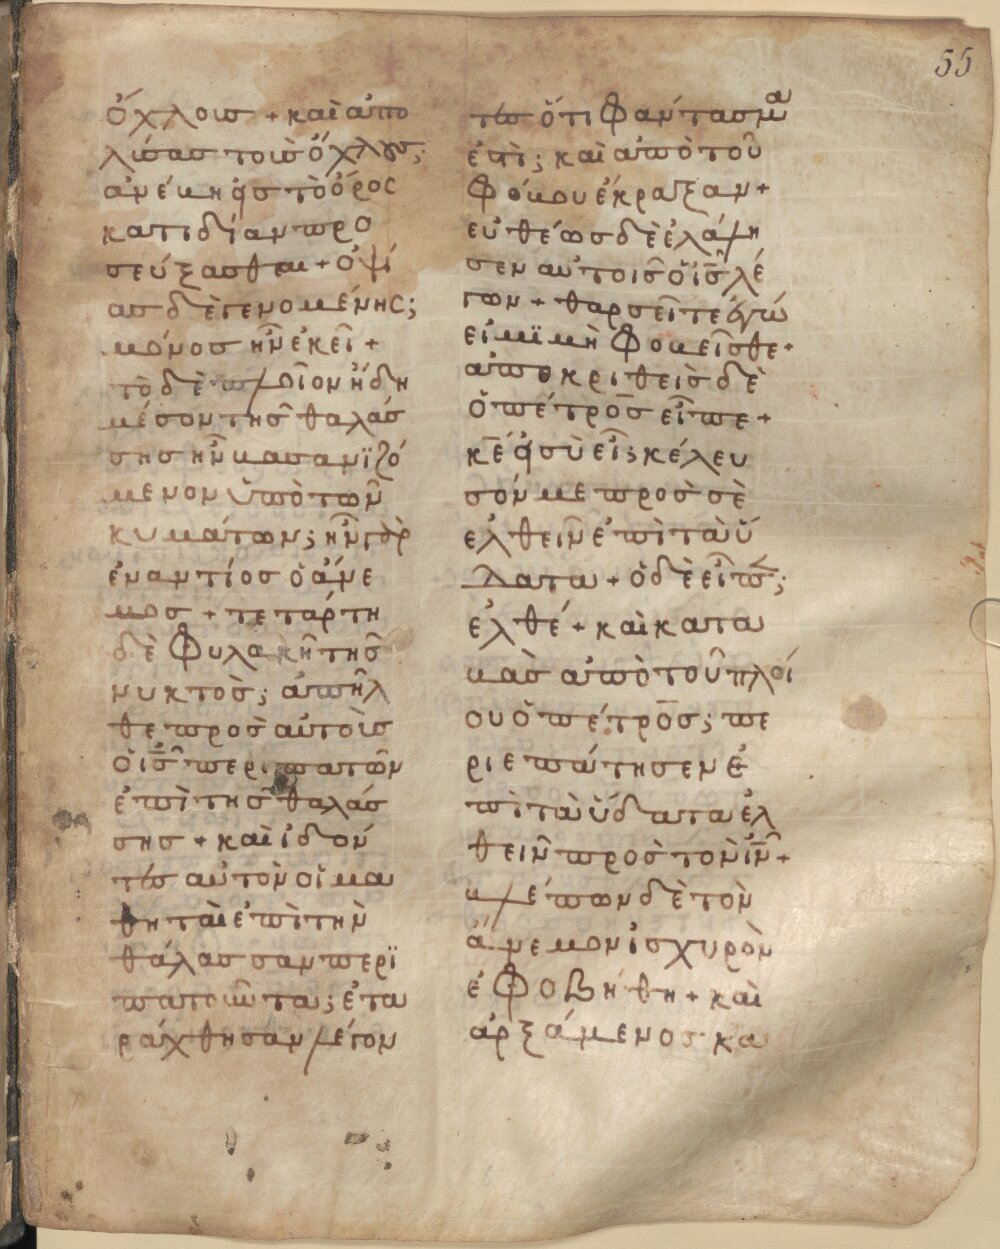 55
ὄχλοισ + καὶ ἀπο
λύσασ τοὺσ ὄχλους;
ἀνέβη εἰσ τὸ ὄρος
κατιδίαν προ
σεύξασθαι + ὀψί
ασ δὲ γενομένης;
μόνοσ ἦν ἐκεῖ +
τὸ δὲ πλοῖον ἤδη
μέσον τῆσ θαλάσ
σησ ἦν βασανϊζό
μενον ὑπὸ τῶν
κυμάτων; ἦν γὰρ
ἐναντίοσ ὁ ἄνε
μοσ + τετάρτη
δὲ φυλακῆ τῆσ
νυκτὸσ; ἀπῆλ
θε προσ αὐτοὺσ
ὁ ισ̅ περιπατῶν
ἐπὶ τῆσ θαλάσ
σησ + καὶ ἰδόν
τεσ αὐτὸν οἱ μα
θηταὶ ἐπὶ τὴν
θάλασσαν περϊ
πατοῦντα; ἐτα
ράχθησαν λέγον
τεσ ὅτι φάντασμα
ἐστὶ; καὶ ἀπὸ τοῦ
φόβου ἔκραξαν +
εὐθέωσ δὲ ἐλάλη
σεν αὐτοῖσ ὁ ισ̅ λέ
γων + θαρσεῖτε ἐγώ
εἰμϊ μὴ φοβεῖσθε +
ἀποκριθεὶσ δὲ
ὁ πέτροσ εἶπε +
κε̅ εἰ σὺ εἶ; κέλευ
σόν με προσ σὲ
ἐλθεῖν ἐπὶ τὰ ὕ
δατα + ὁ δὲ εἶπεν;
ἐλθέ + καὶ κατα
βὰσ ἀπὸ τοῦ πλοί
ου ὁ πέτροσ; πε
ριεπάτησεν ἐ
πὶ τὰ ὕδατα ἐλ
θεῖν προσ τὸν ιν̅ +
βλέπων δὲ τὸν
ἄνεμον ἰσχυρὸν
ἐφοβήθη + καὶ
ἀρξάμενοσ κα